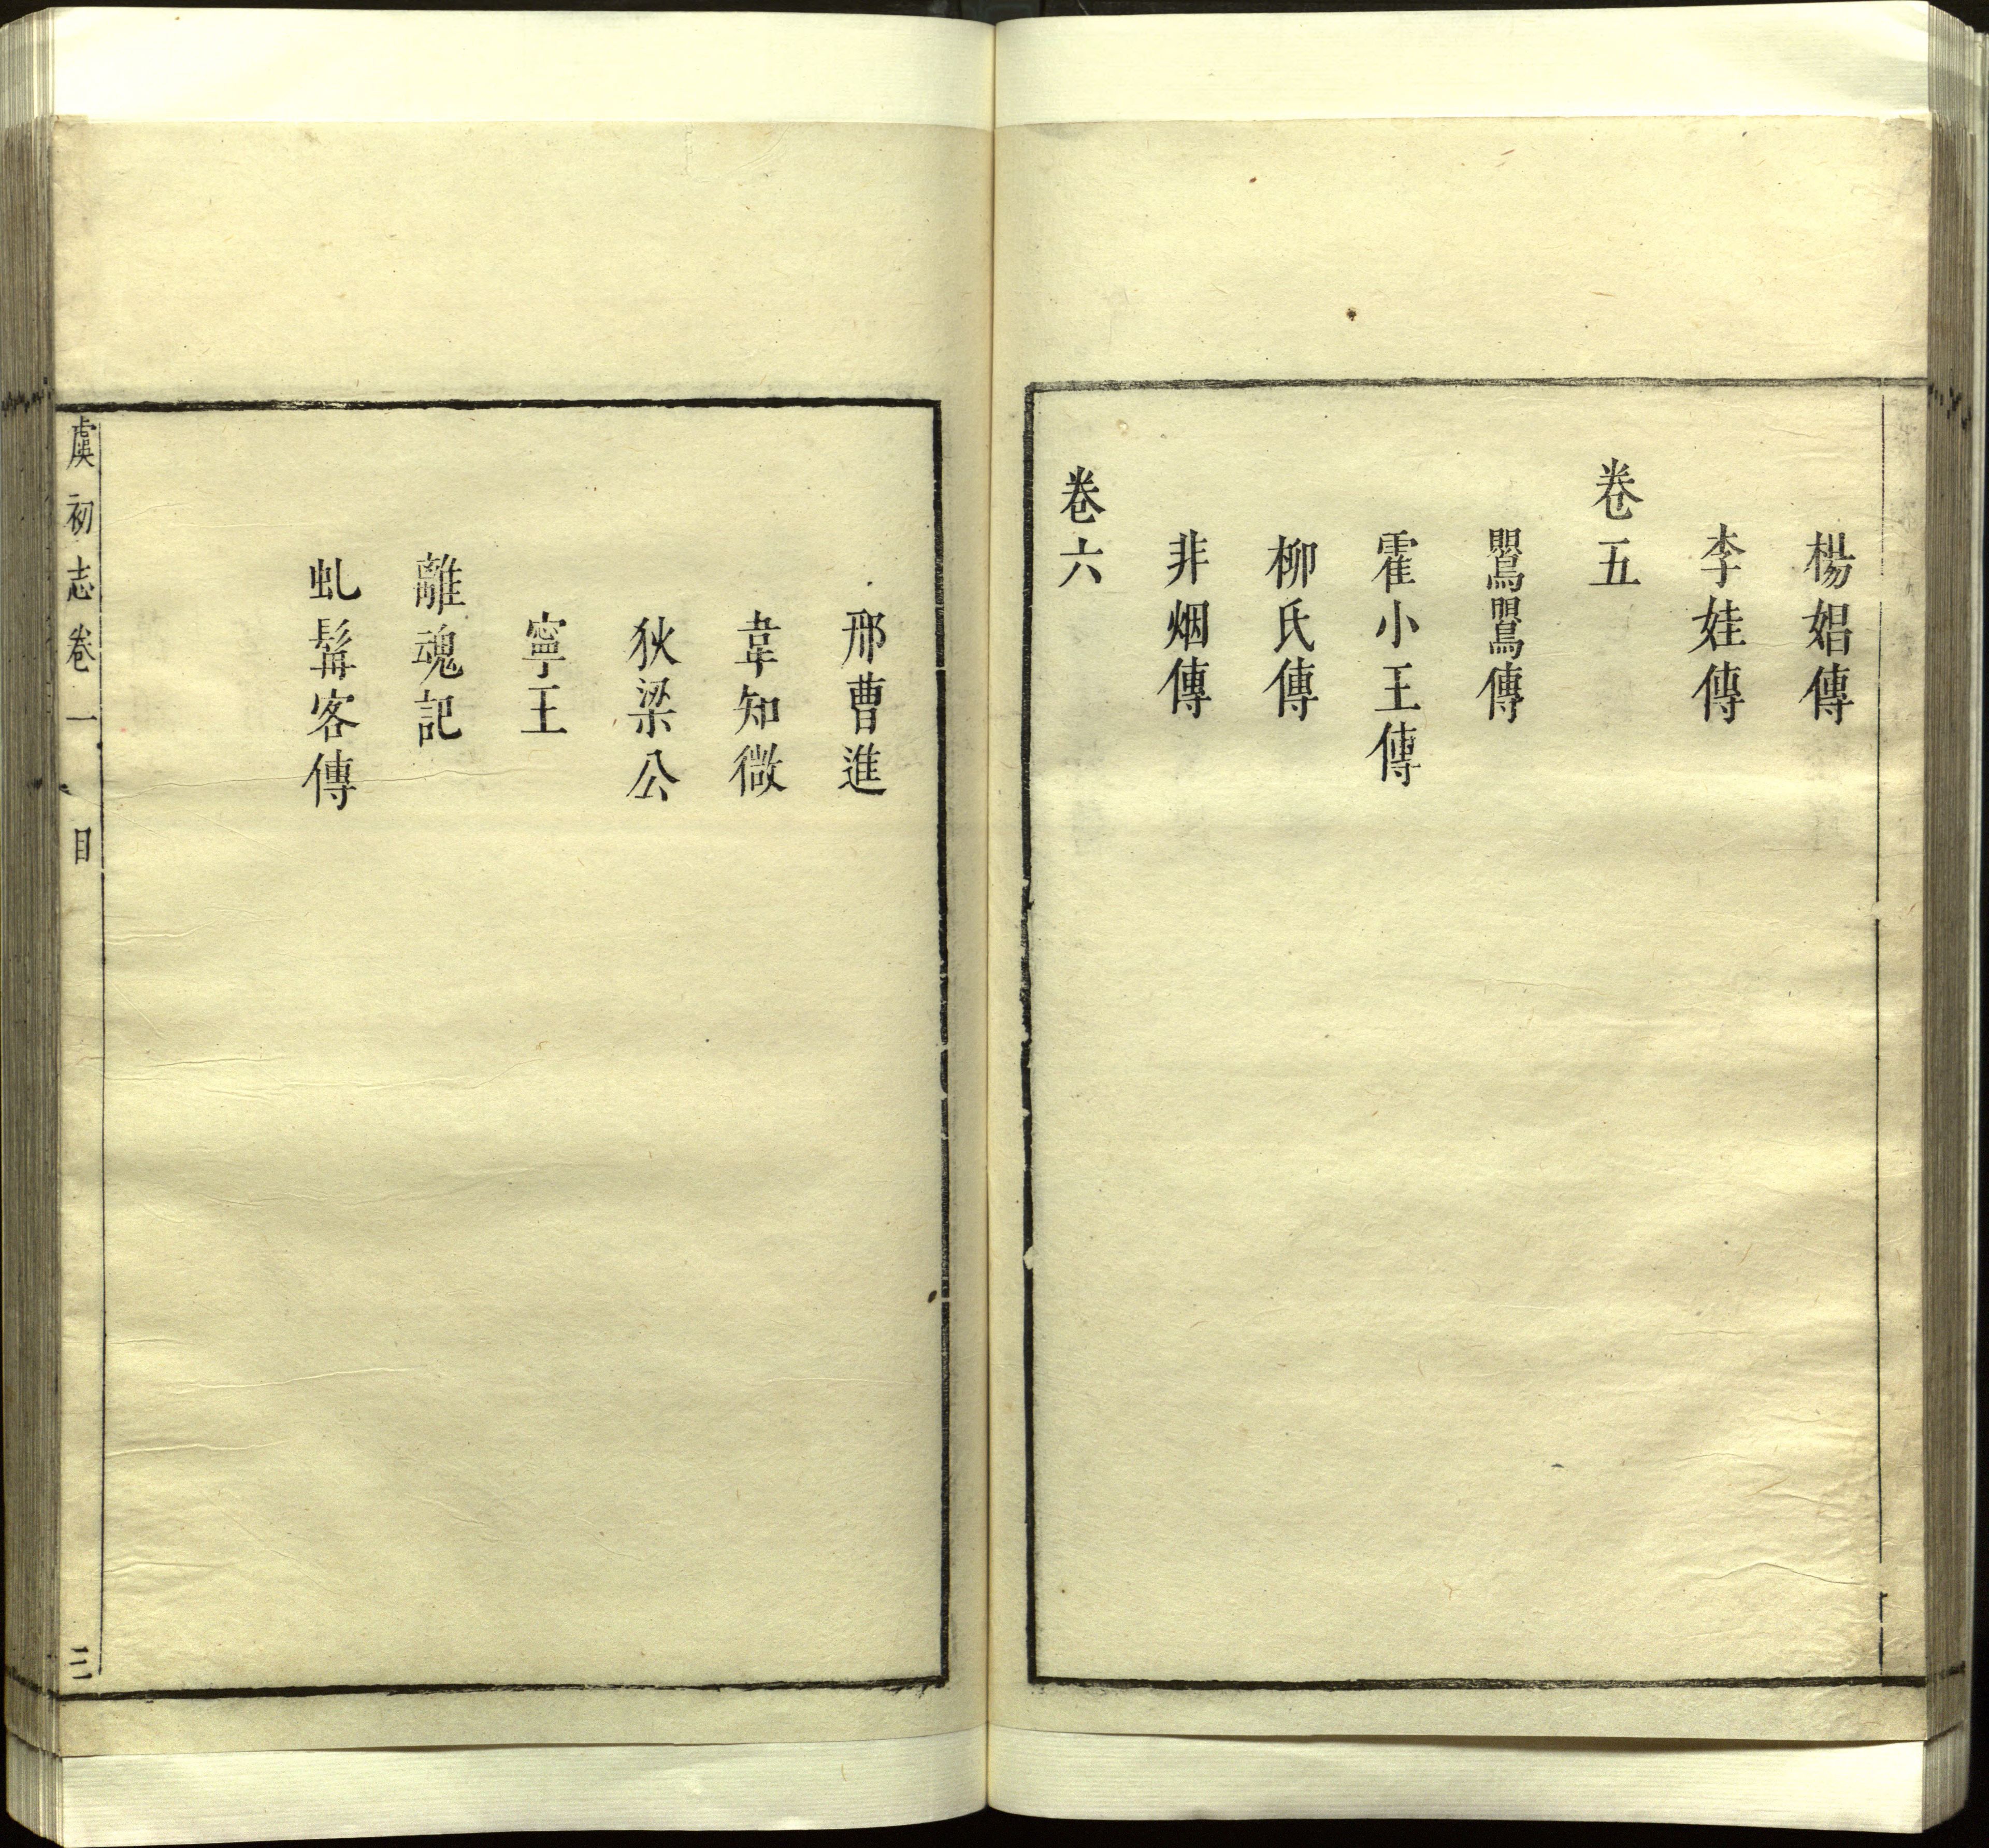 楊娼傳
李娃傳
卷五
鸎鸎傳
霍小玉傳
柳氏傳
非烟傳
卷六
邢曹進
韋知微
狄梁公
寧王
離魂記
虬髯客傳
虞初志卷一 目 三